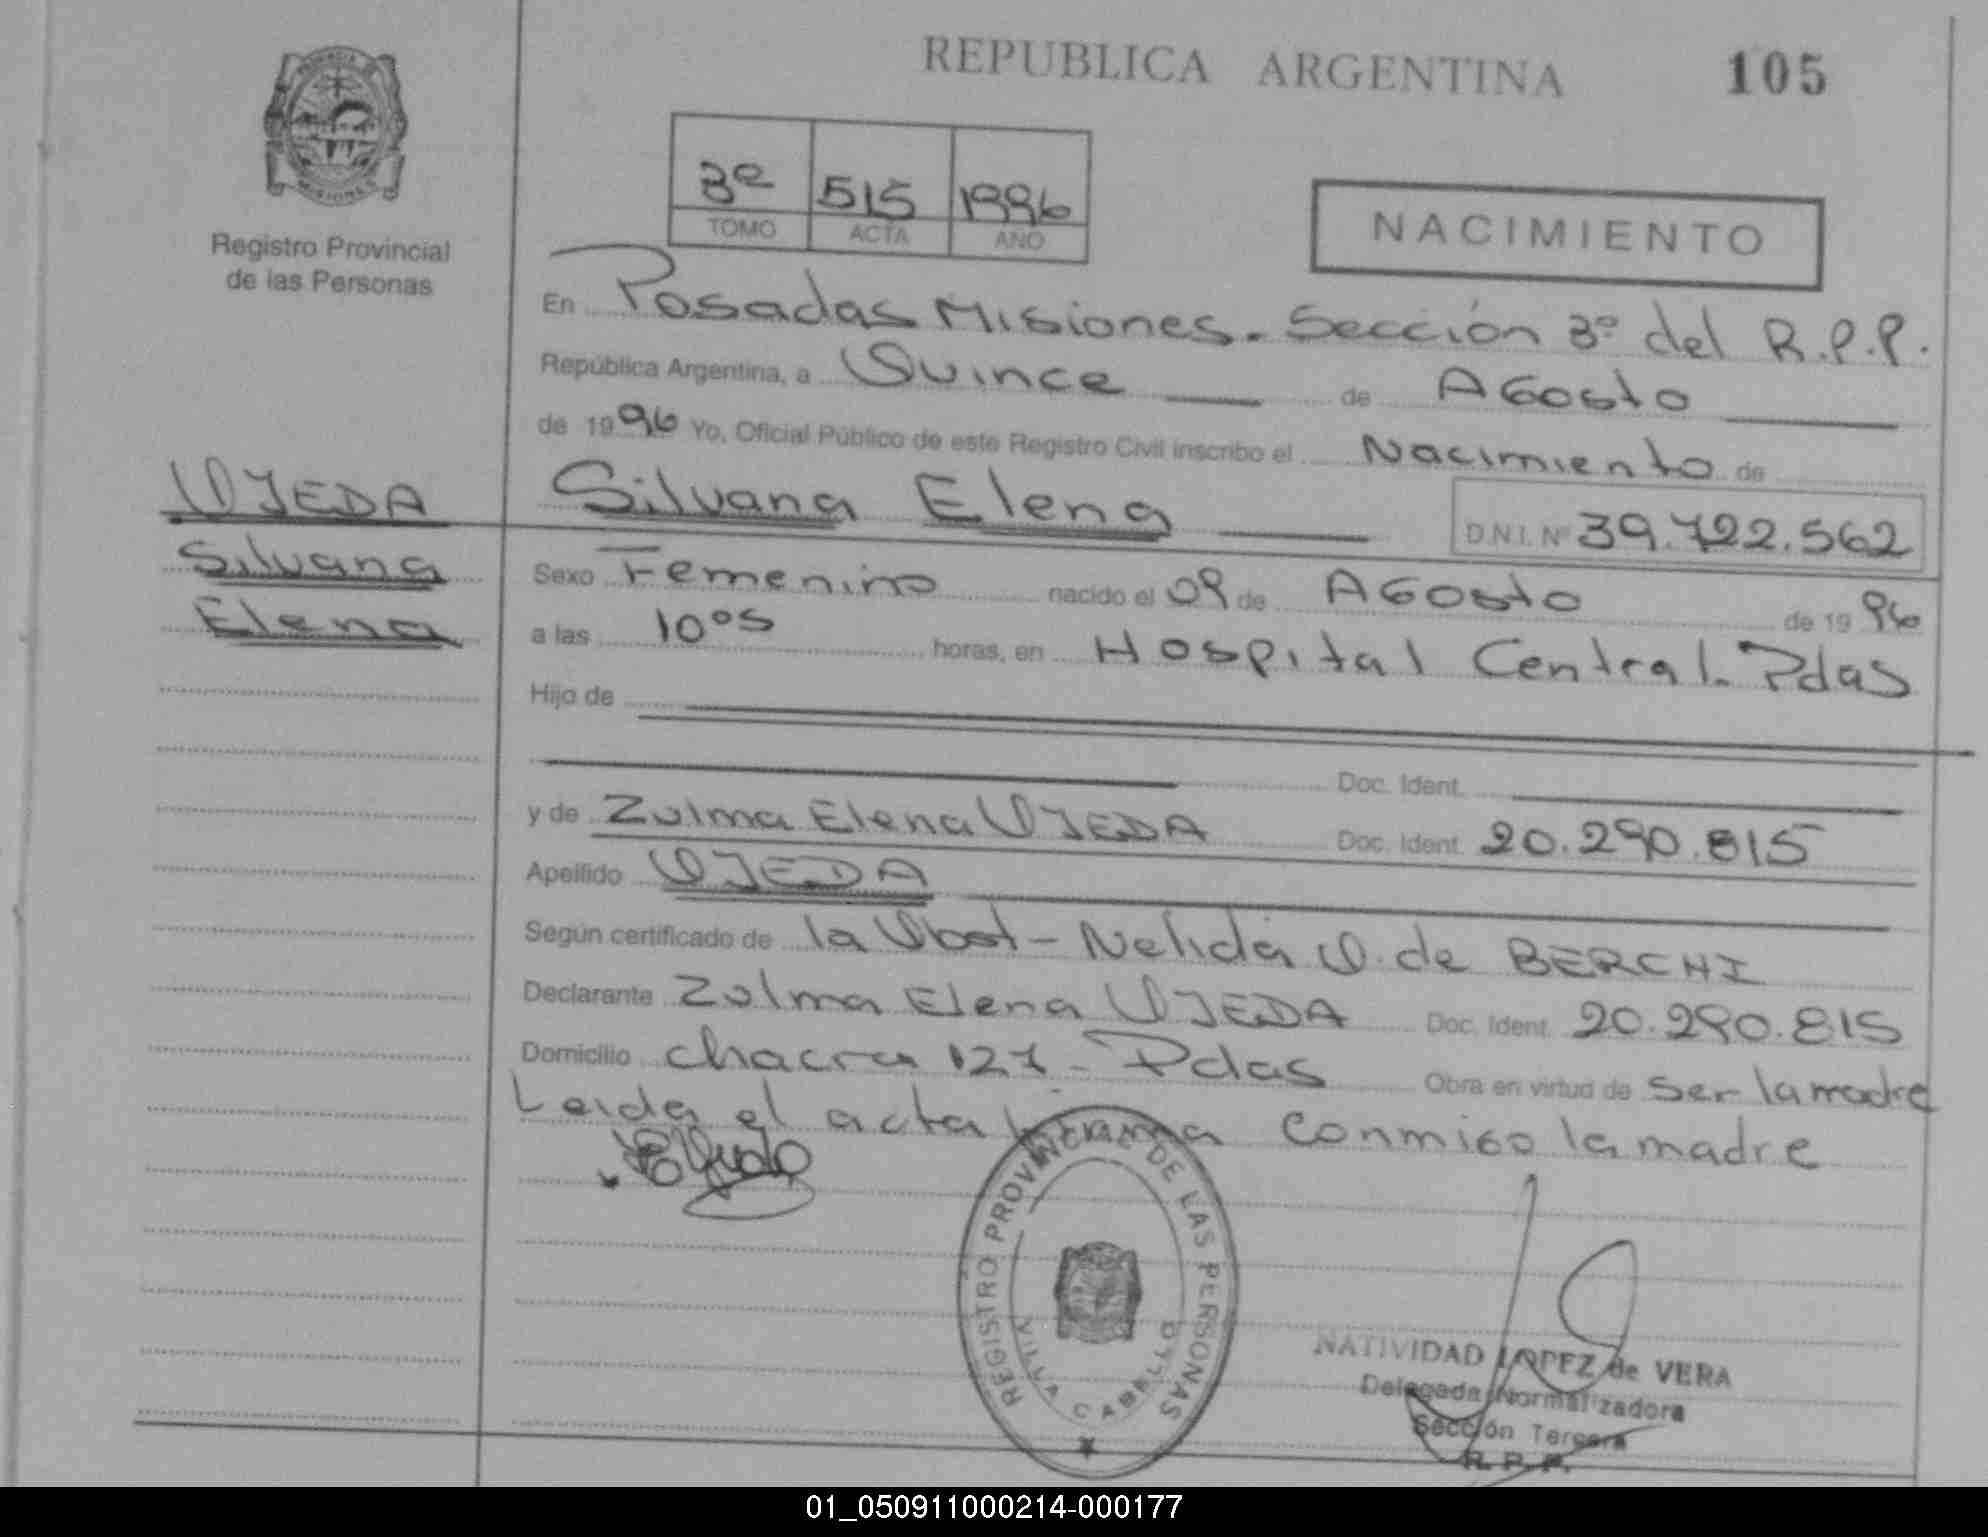 REPUBLICA ARGENTINA 105
PROVINCIA DE MISIONES
Registro Provincial
de las Personas
3º 515 1996
TOMO ACTA AÑO
NACIMIENTO
En Posadas Misiones. Sección 3º del R.P.P.
República Argentina, a Quince de AGosto
de 1996 Yo, Oficial Público de este Registro Civil inscribo el Nacimiento de
OJEDA Silvana Elena D.N.I. Nº 39.722.562
Silvana
Elena
Sexo Femenino nacido el 09 de AGosto de 1996
a las 10⁰⁵ horas, en Hospital Central. Pdas
Hijo de
Doc. Ident.
y de Zulma Elena OJEDA Doc. Ident. 20.290.815
Apellido OJEDA
Según certificado de la Obst - Nelida O. de BERCHI
Declarante Zulma Elena OJEDA Doc. Ident. 20.290.815
Domicilio chacra 127 - Pdas Obra en virtud de Ser la madre
Leida el acta firma conmiGo la madre
REGISTRO PROVINCIAL DE LAS PERSONAS
VILLA CABELLO
NATIVIDAD LOPEZ de VERA
Delegada Normalizadora
Sección Tercera
R. P. P.
01_050911000214-000177